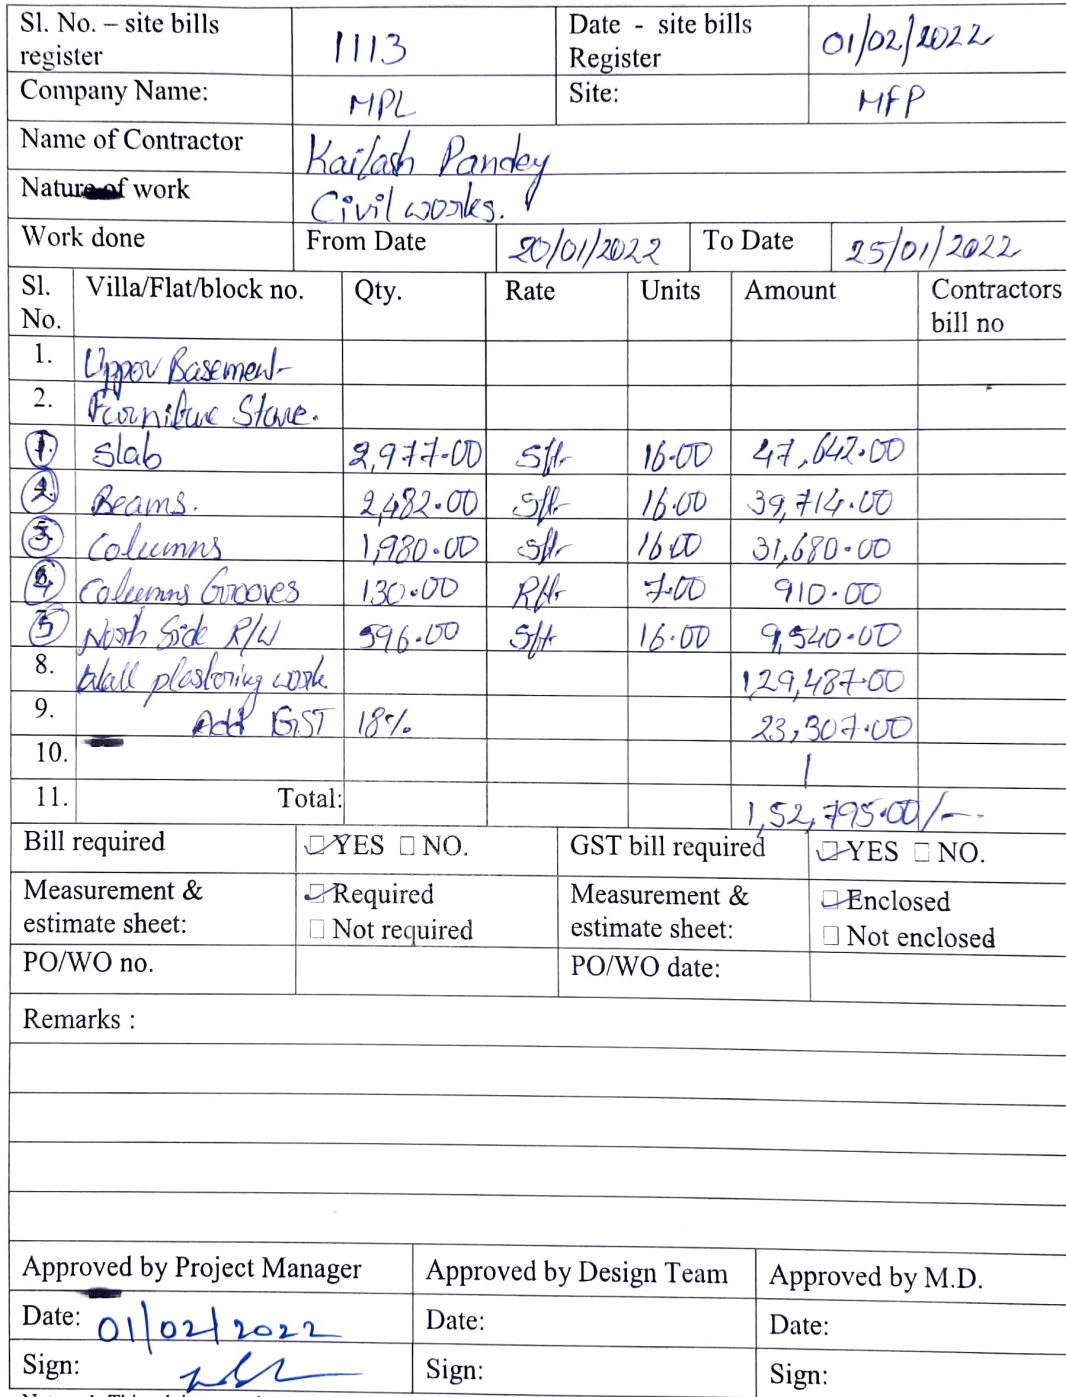 Sl. No. – site bills register 1113 Date - site bills Register 01/02/2022
Company Name: MPL Site: MFP
Name of Contractor Kailash Pandey
Nature of work Civil works.
Work done From Date 20/01/2022 To Date 25/01/2022
Sl. No. Villa/Flat/block no. Qty. Rate Units Amount Contractors bill no
1. Upper Basement
2. Furniture Store.
1. Slab 2,977.00 Sft 16.00 47,642.00
2. Beams. 2,482.00 Sft 16.00 39,714.00
3. Columns 1,980.00 Sft 16.00 31,680.00
4. Columns Grooves 130.00 Rft 7.00 910.00
5 North Side R/W 596.00 Sft 16.00 9,540.00
8. Wall plastoring work 129,487.00
9. Add GST 18% 23,307.00
10.
11. Total: 1,52,795.00/-
Bill required YES NO. GST bill required YES NO.
Measurement & estimate sheet: Required Not required Measurement & estimate sheet: Enclosed Not enclosed
PO/WO no. PO/WO date:
Remarks :
Approved by Project Manager Approved by Design Team Approved by M.D.
Date: 01/02/2022 Date: Date:
Sign: Sign: Sign: